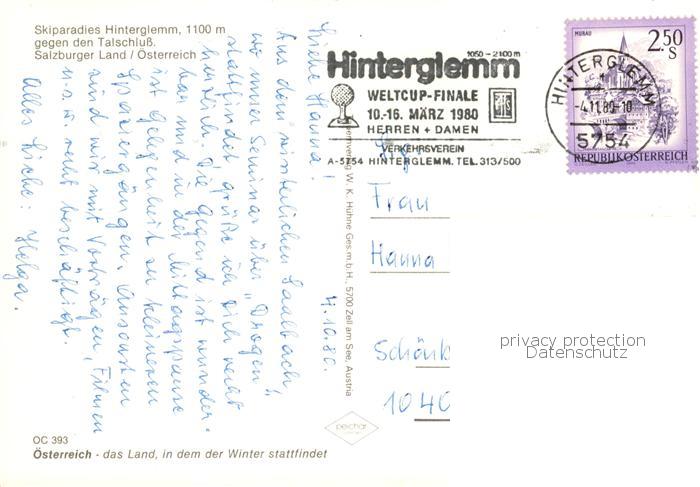 Skiparadies Hinterglemm, 1100 m
gegen den Talschluß.
Salzburger Land / Österreich
4.10.80.
Liebe Hanna!
Aus dem winterlichen Saalbach,
wo unser Seminar über "Drogen"
stattfindet, grüße ich Dich recht
herzlich. Die Gegend ist wunder-
bar und in der Mittagspause
ist Gelegenheit zu kleineren
Spaziergängen. Ansonsten
sind wir mit Vorträgen, Filmen
u.s.w. recht beschäftigt.
Alles Liebe: Helga.
OC 393
Österreich - das Land, in dem der Winter stattfindet
W. K. Hühne Ges.m.b.H., 5700 Zell am See, Austria
peichar
1050 - 2100 m
Hinterglemm
WELTCUP-FINALE
10.-16. MÄRZ 1980
HERREN + DAMEN
VERKEHRSVEREIN
A-5754 HINTERGLEMM. TEL. 313/500
HINTERGLEMM
-4.11.80-10
5754
MURAU
2.50
S
REPUBLIK ÖSTERREICH
Frau
Hanna
Schönb
1040
privacy protection
Datenschutz